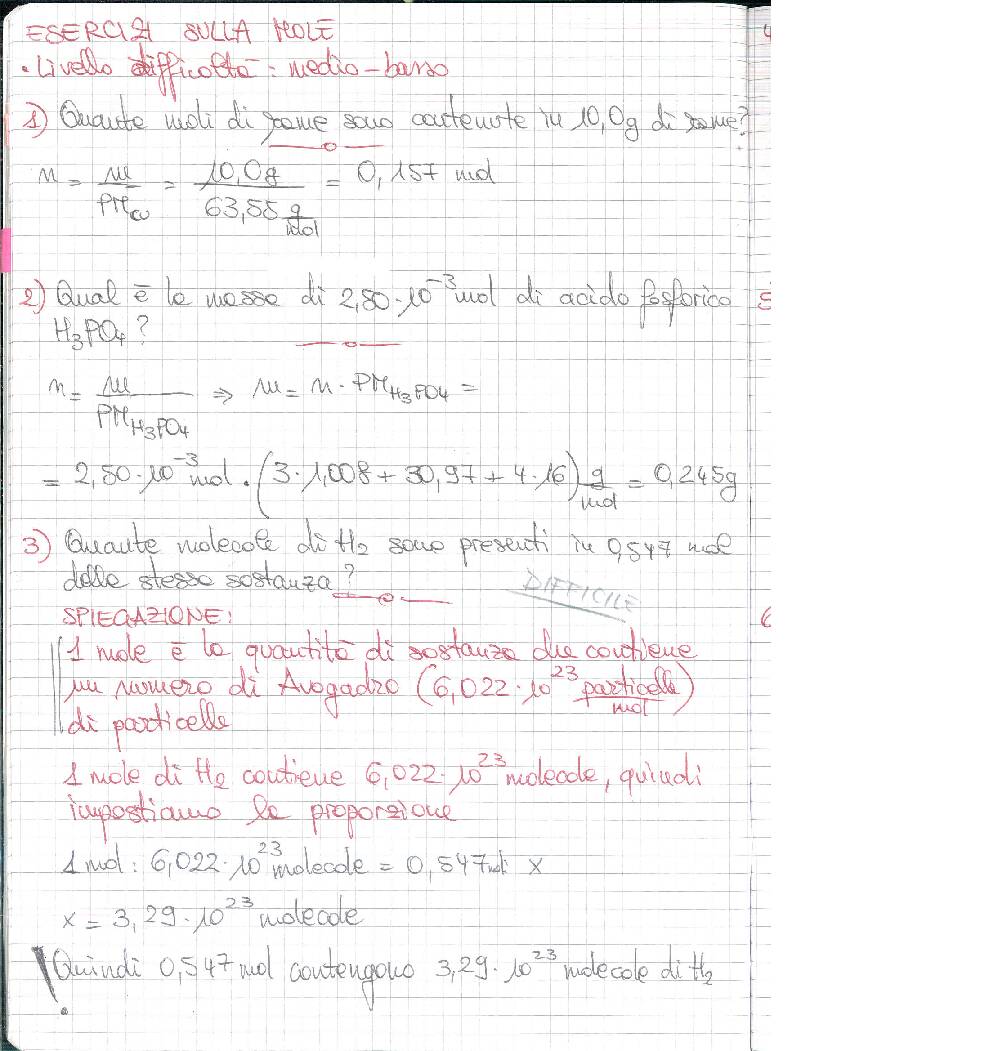 ESERCIZI SULLA MOLE
• Livello difficoltà: medio-basso
1) Quante moli di rame sono contenute in 10,0g di rame?
n = m/PM_Cu = 10,0g / 63,55 g/mol = 0,157 mol
2) Qual è la massa di 2,50·10⁻³ mol di acido fosforico
H₃PO₄?
n = m/PM_H₃PO₄ ⇒ m = n · PM_H₃PO₄ =
= 2,50·10⁻³ mol · (3·1,008 + 30,97 + 4·16) g/mol = 0,245g
3) Quante molecole di H₂ sono presenti in 0,547 mol
della stessa sostanza?
DIFFICILE
SPIEGAZIONE:
1 mole è la quantità di sostanza che contiene
un numero di Avogadro (6,022·10²³ particelle/mol)
di particelle
1 mole di H₂ contiene 6,022·10²³ molecole, quindi
impostiamo la proporzione
1 mol : 6,022·10²³ molecole = 0,547 mol : x
x = 3,29·10²³ molecole
! Quindi 0,547 mol contengono 3,29·10²³ molecole di H₂